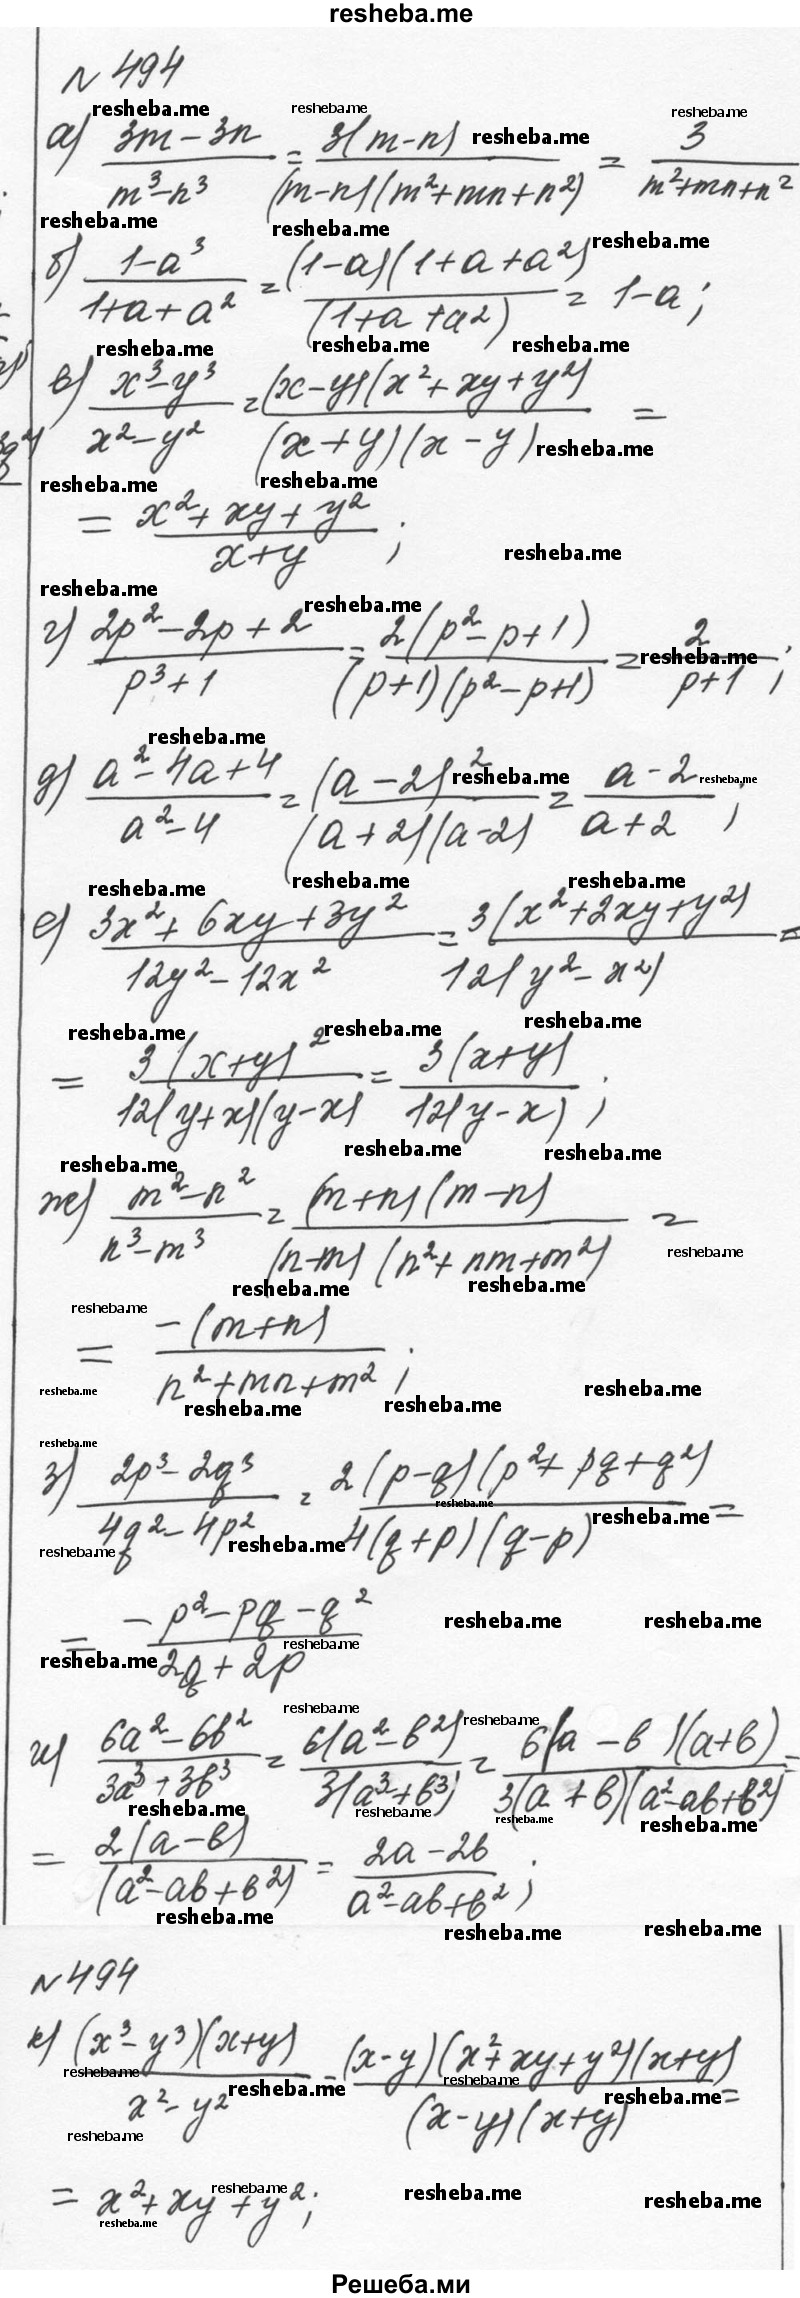 resheba.me
№ 494
а) (3m – 3n)/(m³ – n³) = 3(m – n)/((m – n)(m² + mn + n²)) = 3/(m² + mn + n²)
б) (1 – a³)/(1 + a + a²) = (1 – a)(1 + a + a²)/(1 + a + a²) = 1 – a;
в) (x³ – y³)/(x² – y²) = (x – y)(x² + xy + y²)/((x + y)(x – y)) =
= (x² + xy + y²)/(x + y);
г) (2p² – 2p + 2)/(p³ + 1) = 2(p² – p + 1)/((p + 1)(p² – p + 1)) = 2/(p + 1);
д) (a² – 4a + 4)/(a² – 4) = (a – 2)²/((a + 2)(a – 2)) = (a – 2)/(a + 2);
е) (3x² + 6xy + 3y²)/(12y² – 12x²) = 3(x² + 2xy + y²)/(12(y² – x²)) =
= 3(x + y)²/(12(y + x)(y – x)) = 3(x + y)/(12(y – x));
ж) (m² – n²)/(n³ – m³) = (m + n)(m – n)/((n – m)(n² + nm + m²)) =
= –(m + n)/(n² + mn + m²);
з) (2p³ – 2q³)/(4q² – 4p²) = 2(p – q)(p² + pq + q²)/(4(q + p)(q – p)) =
= (–p² – pq – q²)/(2q + 2p)
и) (6a² – 6b²)/(3a³ + 3b³) = 6(a² – b²)/(3(a³ + b³)) = 6(a – b)(a + b)/(3(a + b)(a² – ab + b²)) =
= 2(a – b)/(a² – ab + b²) = (2a – 2b)/(a² – ab + b²);
№ 494
к) (x³ – y³)(x + y)/(x² – y²) = (x – y)(x² + xy + y²)(x + y)/((x – y)(x + y)) =
= x² + xy + y²;
Решеба.ми